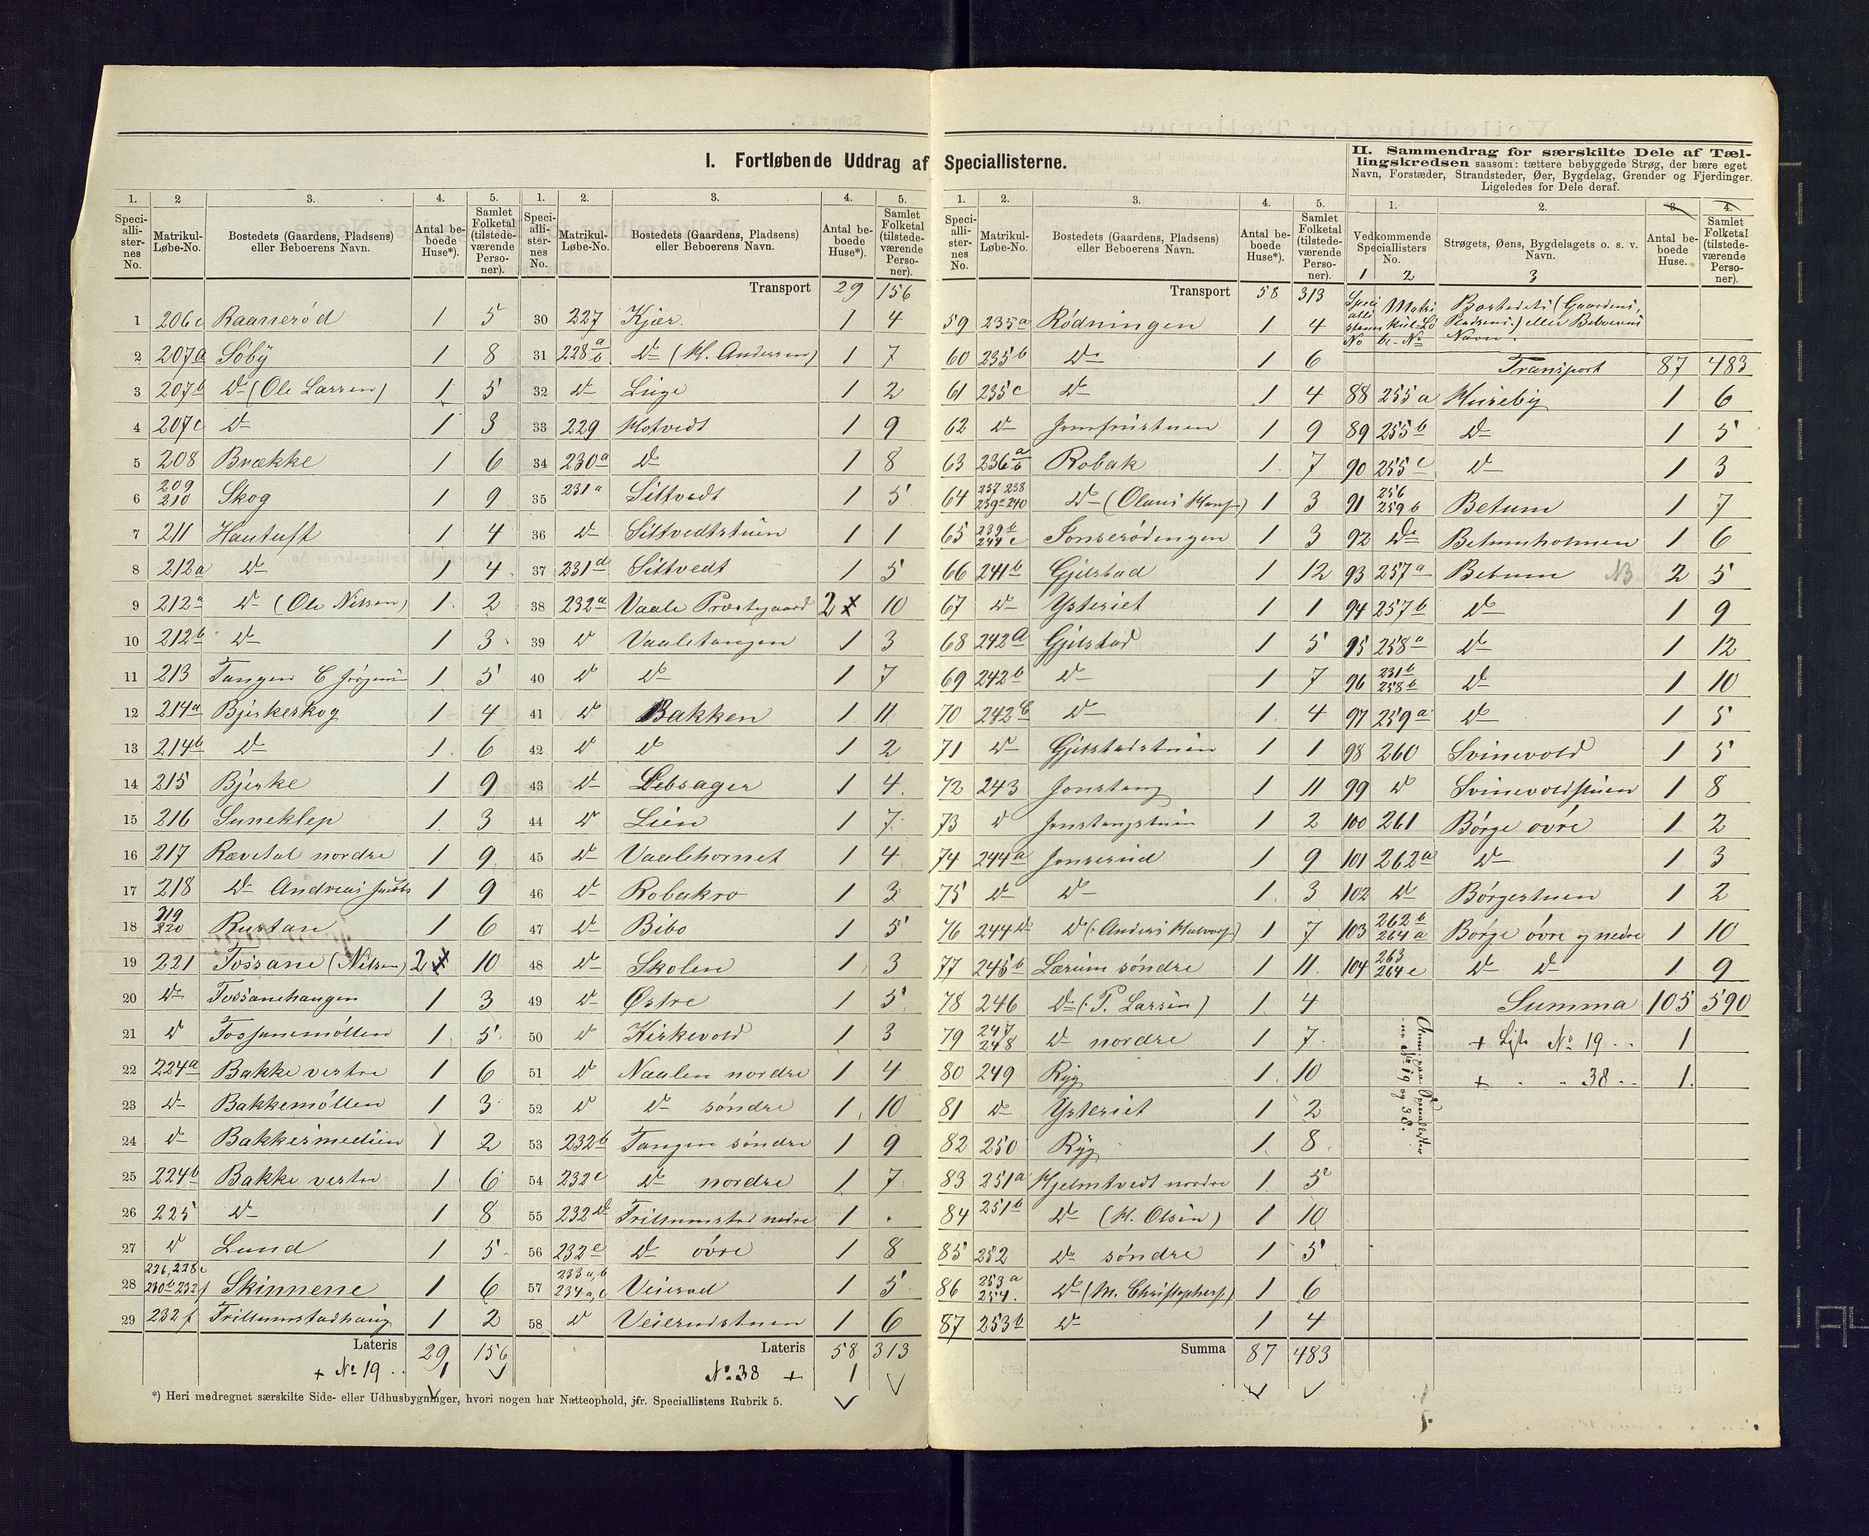 I. Fortløbende Uddrag af Speciallisterne.
1. Speciallisternes No. | 2 Matrikul-Løbe-No. | 3. Bostedets (Gaardens, Pladsens) eller Beboerens Navn. | 4. Antal beboede Huse*). | 5. Samlet Folketal (tilstedeværende Personer).
1 206c Raanerød 1 5
2 207a Søby 1 8
3 207b Do (Ole Larsen) 1 5
4 207c Do 1 3
5 208 Brække 1 6
6 209 210 Skog 1 9
7 211 Hautuft 1 4
8 212a Do 1 4
9 212a Do (Ole Nilsen) 1 2
10 212b Do 1 3
11 213 Tangen 1 5
12 214a Bjerkeskog 1 4
13 214b Do 1 6
14 215 Bjerke 1 9
15 216 Suneklep 1 3
16 217 Rævetal nordre 1 9
17 218 Do Andreas 1 9
18 219 220 Rustan 1 6
19 221 Fossane (Nilsen) 2 10
20 Do Fossanehaugen 1 3
21 Do Fossanemøllen 1 5
22 224a Bakke vestre 1 6
23 Do Bakkemøllen 1 3
24 Do Bakkesmedien 1 2
25 224b Bakke vestre 1 6
26 225 Do 1 8
27 Do Lund 1 5
28 226, 228c 230b 232f Skinnene 1 6
29 232f Trillumstadhaug 1 2
Lateris 29 156
+ No 19 .. 1
*) Heri medregnet særskilte Side- eller Udhusbygninger, hvori nogen har Natteophold, jfr. Speciallistens Rubrik 5.
1. Speciallisternes No. | 2. Matrikul-Løbe-No. | 3. Bostedets (Gaardens, Pladsens) eller Beboerens Navn. | 4. Antal beboede Huse*). | 5. Samlet Folketal (tilstedeværende Personer).
Transport 29 156
30 227 Kjær. 1 4
31 228a b Do (M. Andersen) 1 7
32 Do Luge 1 2
33 229 Hotvedt 1 9
34 230a Do 1 8
35 231a Siltvedt 1 5
36 Do Siltvedtstuen 1 1
37 231d Siltvedt 1 5
38 232a Vaale Præstegaard 2 10
39 Do Vaaletangen 1 3
40 Do Do 1 7
41 Do Bakken 1 11
42 Do Do 1 2
43 Do Lebsager 1 4
44 Do Lien 1 7
45 Do Vaalehornet 1 4
46 Do Robakro 1 3
47 Do Bibo 1 5
48 Do Skolen 1 3
49 Do Østre 1 5
50 Do Kirkevold 1 3
51 Do Naalen nordre 1 4
52 Do Do søndre 1 10
53 232b Tangen søndre 1 9
54 232c Do nordre 1 7
55 232d Trillumstad nedre 1 .
56 232e Do øvre 1 8
57 233a,b 234a,c Veierød 1 5
58 Do Veierudstuen 1 6
Lateris 58 313
No 38 + 1
1. Speciallisternes No. | 2. Matrikul-Løbe-No. | 3. Bostedets (Gaardens, Pladsens) eller Beboerens Navn. | 4. Antal beboede Huse*). | 5. Samlet Folketal (tilstedeværende Personer).
Transport 58 313
59 235a Rødningen 1 4
60 235b Do 1 6
61 235c Do 1 4
62 Do Jomfrustuen 1 9
63 236a b Robak 1 7
64 237 238 239a 240 Do (Olaus Hans) 1 3
65 239b 241c Fonserødengen 1 3
66 241b Gjelstad 1 12
67 Do Ysteriet 1 1
68 242a Gjelstad 1 5
69 242b Do 1 7
70 242c Do 1 4
71 Do Gjelstadstuen 1 1
72 243 Jonstang 1 11
73 Do Jonstangstuen 1 2
74 244a Jonserud 1 9
75 Do Do 1 3
76 244 Do (Anders Halvors) 1 7
77 245b Lærum søndre 1 11
78 246 Do (P. Larsen) 1 4
79 247 248 Do nordre 1 7
80 249 Ryg 1 10
81 Do Ysteriet 1 2
82 250 Ryg 1 8
83 251a Hjelmtvedt nordre 1 5
84 251b Do (H. Olsen) 1 10
85 252 Do søndre 1 5
86 253a 254. Do (M. Christophers) 1 6
87 253b Do 1 4
Summa 87 483
II. Sammendrag for særskilte Dele af Tællingskredsen saasom: tættere bebyggede Strøg, der bære eget Navn, Forstæder, Strandsteder, Øer, Bygdelag, Grender og Fjerdinger. Ligeledes for Dele deraf.
1. Vedkommende Speciallisters No. | 2. Strøgets, Øens, Bygdelagets o. s. v. Navn. | 3. Antal beboede Huse. | 4. Samlet Folketal (tilstedeværende Personer).
1 2 3
Bostedets (Gaardens, Pladsens) eller Beboerens Navn.
Transport 87 483
88 255a Huseby 1 6
89 255b Do 1 5
90 255c Do 1 3
91 256 259b Betum 1 7
92 Do Betumholmen 1 6
93 257a Betum NB 2 5
94 257b Do 1 9
95 258a Do 1 12
96 231b 258b Do 1 10
97 259a Do 1 5
98 260 Svinevold 1 5
99 Do Svinevoldstuen 1 8
100 261 Børge øvre 1 2
101 262a Do 1 3
102 Do Børgestuen 1 2
103 262b 264a Børge øvre og nedre 1 10
104 263 264c Do Do 1 9
Summa 105 590
+ Liste No 19 .. 1
+ " " 38 .. 1.
No 19 og 38.